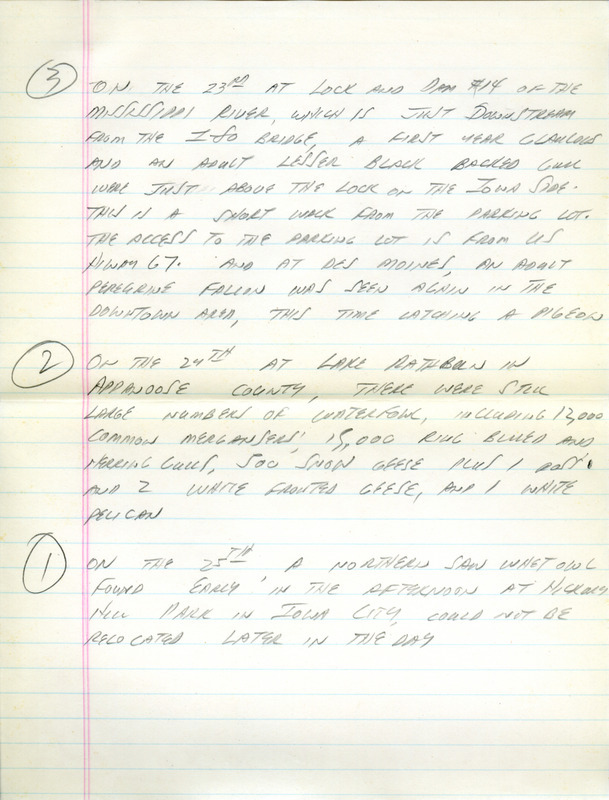 ③ ON THE 23RD AT LOCK AND DAM #14 OF THE
MISSISSIPPI RIVER, WHICH IS JUST DOWNSTREAM
FROM THE I 80 BRIDGE, A FIRST YEAR GLAUCOUS
AND AN ADULT LESSER BLACK BACKED GULL
WERE JUST ABOVE THE LOCK ON THE IOWA SIDE.
THIS IS A SHORT WALK FROM THE PARKING LOT.
THE ACCESS TO THE PARKING LOT IS FROM US
HIWAY 67. AND AT DES MOINES, AN ADULT
PEREGRINE FALCON WAS SEEN AGAIN IN THE
DOWNTOWN AREA, THIS TIME CATCHING A PIGEON
② ON THE 24TH AT LAKE RATHBUN IN
APPANOOSE COUNTY, THERE WERE STILL
LARGE NUMBERS OF WATERFOWL, INCLUDING 12,000
COMMON MERGANSERS, 15,000 RING BILLED AND
HERRING GULLS, 500 SNOW GEESE PLUS 1 ROSS'
AND 2 WHITE FRONTED GEESE, AND 1 WHITE
PELICAN
① ON THE 25TH, A NORTHERN SAW WHET OWL
FOUND EARLY IN THE AFTERNOON AT HICKORY
HILL PARK IN IOWA CITY, COULD NOT BE
RELOCATED LATER IN THE DAY